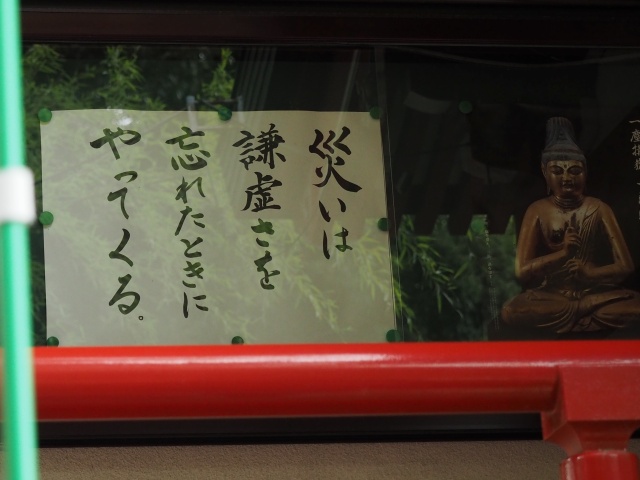 災いは
謙虚さを
忘れたときに
やってくる。